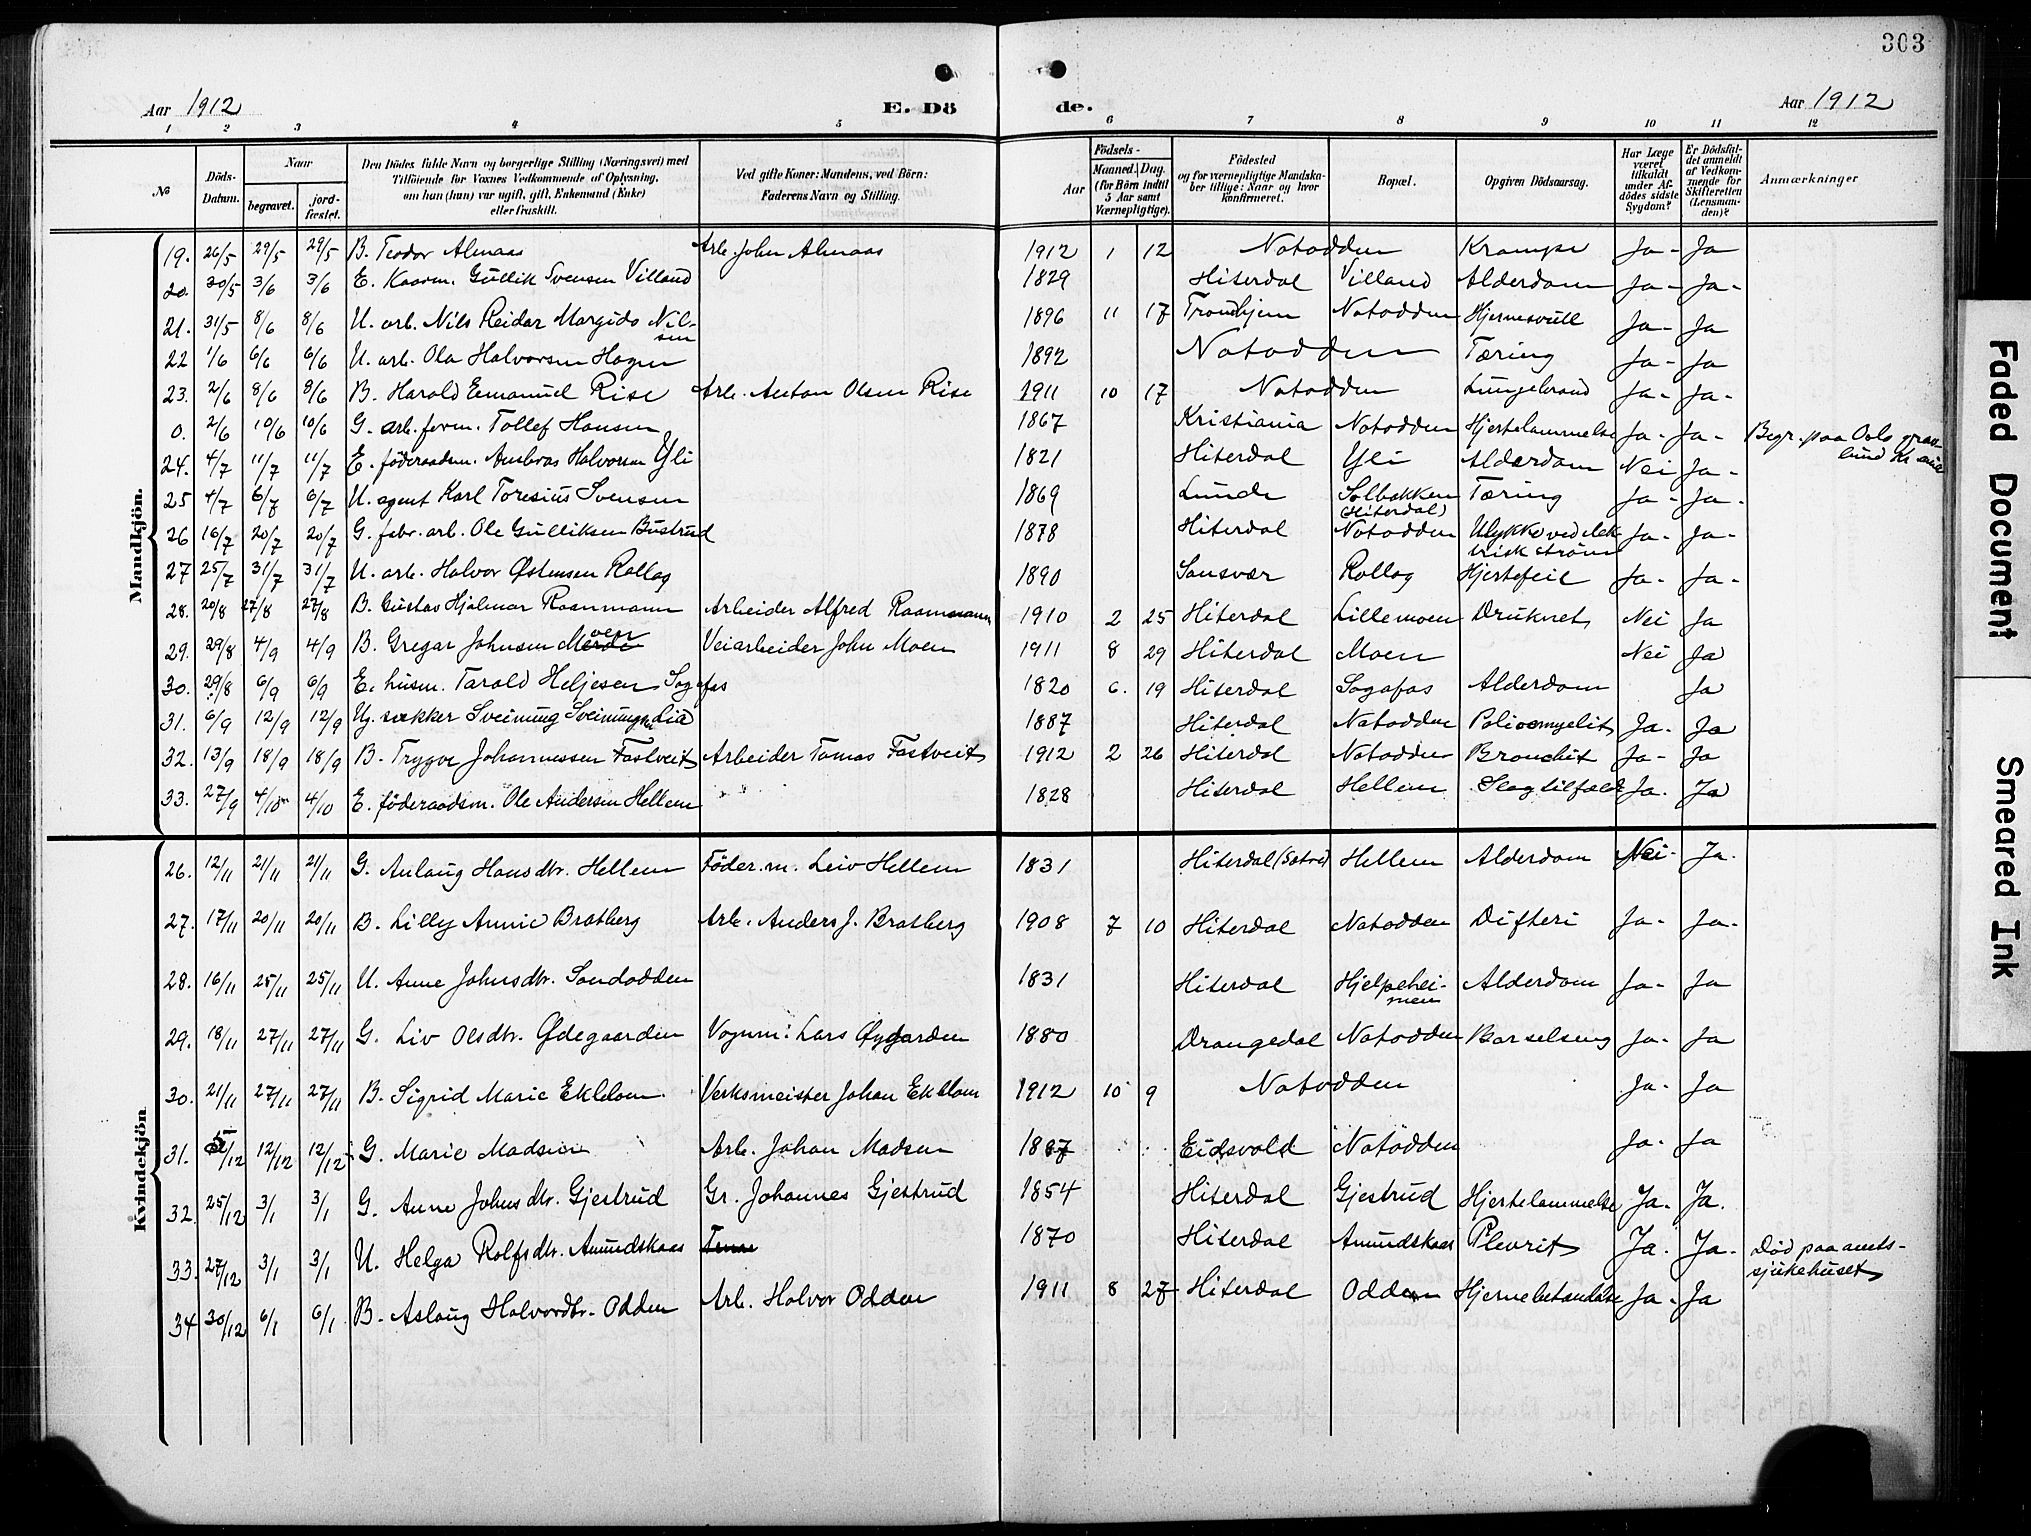 303
Aar 1912
E. Dö
de.
Aar 1912
1 2 3 4 5 6 7 8 9 10 11 12
№
Döds-Datum.
Naar
begravet.
jord-fæstet.
Den Dödes fulde Navn og borgerlige Stilling (Næringsvei) med
Tilföiende for Voxnes Vedkommende af Oplysning,
om han (hun) var ugift, gift, Enkemand (Enke)
eller fraskilt.
Ved gifte Koner: Mandens, ved Börn:
Faderens Navn og Stilling.
Födsels-
Aar
Maaned. Dag.
(for Børn indtil
5 Aar samt
Værnepligtige).
Födested
og for værnepligtige Mandska-
ber tillige: Naar og hvor
konfirmeret.
Bopæl.
Opgiven Dödsaarsag.
Har Læge
været
tilkaldt
under Af-
dödes sidste
Sygdom?
Er Dödsfal-
det anmeldt
af Vedkom-
mende for
Skifteretten
(Lensman-
den)?
Anmærkninger
Mandkjön.
19. 26/5 29/5 29/5 B. Teodor Almaas Arb. John Almaas 1912 1 12 Notodden Krampe Ja - Ja
20. 30/5 3/6 3/6 E. Kaarm. Gullik Svensen Villand 1829 Hiterdal Villand Alderdom Ja - Ja -
21. 31/5 8/6 8/6 U. arb. Nils Reidar Margido Nil-
sen 1896 11 17 Trondhjem Notodden Hjernesvull Ja - Ja
22 1/6 6/6 6/6 U. arb. Ola Halvorsen Hagen 1892 Notodden Tæring Ja - Ja
23. 2/6 8/6 8/6 B. Harald Emanuel Rise Arb. Anton Olsen Rise 1911 10 17 Notodden Lungebrand Ja - Ja -
0. 2/6 10/6 10/6 G. arb. form. Tollef Hansen 1867 Kristiania Notodden Hjertelammelse Ja - Ja - Begr. paa Oslo grav-
lund Kr.ania
24. 4/7 11/7 11/7 E. föderaadsm. Ambros Halvorsen Yli 1821 Hiterdal Yli Alderdom Nei Ja -
25 4/7 6/7 6/7 U. agent Karl Toresius Svensen 1869 Lunde Solbakken
(Hiterdal) Tæring Ja - Ja -
26 16/7 20/7 20/7 G. fabr. arb. Ole Gulliksen Bustrud 1878 Hiterdal Notodden Ulykke ved elek-
trisk ström Ja - Ja -
27 25/7 31/7 31/7 U. arb. Halvor Østensen Rollag 1890 Sansvær Rollag Hjertefeil Ja - Ja -
28. 20/8 27/8 27/8 B. Gustav Hjalmar Raanmann Arbeider Alfred Raanmann 1910 2 25 Hiterdal Lillemoen Druknet Nei Ja
29. 29/8 4/9 4/9 B. Gregar Johnsen Moen Veiarbeider John Moen 1911 8 29 Hiterdal Moen Nei Ja
30. 29/8 6/9 6/9 E. husm. Tarald Heljesen Sagafos 1820 6. 19 Hiterdal Sagafos Alderdom Ja
31. 6/9 12/9 12/9 Ug. snekker Sveinung Sveinungsen Lia 1887 Hiterdal Notodden Poliomyelit Ja. Ja
32. 13/9 18/9 18/9 B. Trygve Johannessen Fastveit Arbeider Tomas Fastveit 1912 2 26 Hiterdal Notodden Bronchit Ja - Ja
33. 27/9 4/10 4/10 E. föderaadsm. Ole Andersen Hellem 1828 Hiterdal Hellem Slagtilfæld Ja. Ja
Kvindekjön
26. 12/11 21/11 21/11 G. Anlaug Hansdtr. Hellem Föder.m. Leiv Hellem 1831 Hiterdal Hellem Alderdom Nei - Ja.
27. 17/11 20/11 20/11 B. Lilly Annie Bratberg Arb. Anders J. Bratberg 1908 7 10 Hiterdal Notodden Difteri Ja - Ja -
28. 16/11 25/11 25/11 U. Anne Johnsdtr. Sandodden 1831 Hiterdal Hjelpehei-
men Alderdom Ja - Ja
29. 18/11 27/11 27/11 G. Liv Olsdtr. Ødegaarden Vognm: Lars Øygarden 1880 Drangedal Notodden Barselseng Ja - Ja
30. 21/11 27/11 27/11 B. Sigrid Marie Ekblom. Verksmeister Johan Ekblom 1912 10 9 Notodden Ja - Ja
31. 5/12 12/12 12/12 G. Marie Madsen Arb. Johan Madsen 1887 Eidsvold Notodden Ja - Ja
32. 25/12 3/1 3/1 G. Anne Johnsdtr. Gjestrud Gr. Johannes Gjestrud 1854 Hiterdal Gjestrud Hjertelammelse Ja - Ja.
33. 27/12 3/1 3/1 U. Helga Rolfsdtr. Amundskaas 1870 Hiterdal Amundskaas Plevrit Ja. Ja - Död paa amts-
sjukehuset
34 30/12 6/1 6/1 B. Aslaug Halvordtr. Odden Arb. Halvor Odden 1911 8 27 Hiterdal Odden Hjernebetændelse Ja - Ja
Faded Document
Smeared Ink